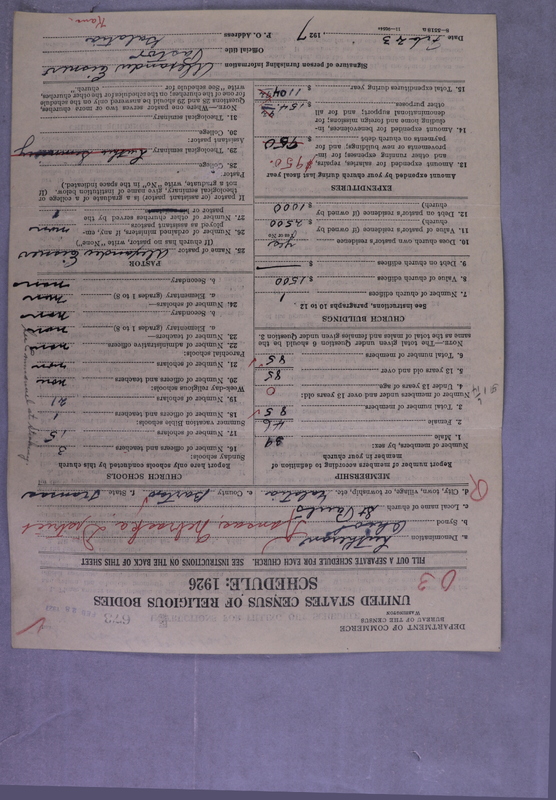 DEPARTMENT OF COMMERCE
BUREAU OF THE CENSUS
WASHINGTON
673
UNITED STATES CENSUS OF RELIGIOUS BODIES
SCHEDULE: 1926
03
FILL OUT A SEPARATE SCHEDULE FOR EACH CHURCH. SEE INSTRUCTIONS ON THE BACK OF THIS SHEET
a. Denomination Lutheran
b. Synod Ohio Kansas, Nebraska District
c. Local name of church St Paul's
d. City, town, village, or township, etc. Galatia e. County Barton f. State Kansas
MEMBERSHIP
Report number of members according to definition of member in your church
Number of members, by sex:
1. Male 39
2. Female 46
3. Total number of members 85
Number of members under and over 13 years old:
4. Under 13 years of age 0
5. 13 years old and over 85
6. Total number of members 85
NOTE.—The total given under Question 6 should be the same as the total of males and females given under Question 3.
CHURCH BUILDINGS
See instructions, paragraphs 10 to 12
7. Number of church edifices 1
8. Value of church edifices $ 1500
9. Debt on church edifices $ —
10. Does church own pastor's residence yes
(Yes or No)
11. Value of pastor's residence (if owned by church) $ 2500
12. Debt on pastor's residence (if owned by church) $ 1000
EXPENDITURES
Amount expended by your church during last fiscal year
13. Amount expended for salaries, repairs, and other running expenses; for improvements or new buildings; and for payments on church debt $ 950
14. Amount expended for benevolences, including home and foreign missions; for denominational support; and for all other purposes $ 154
15. Total expenditures during year $ 1104
CHURCH SCHOOLS
Report here only schools conducted by this church
Sunday schools:
16. Number of officers and teachers 3
17. Number of scholars 15
Summer vacation Bible schools:
18. Number of officers and teachers 1
19. Number of scholars 21
Week-day religious schools:
20. Number of officers and teachers non
21. Number of scholars non
Parochial schools:
22. Number of administrative officers non
23. Number of teachers—
a. Elementary (grades 1 to 8) non
b. Secondary non
24. Number of scholars—
a. Elementary (grades 1 to 8) non
b. Secondary non
PASTOR
25. Name of pastor Alexander Eisner
(If church has no pastor, write "None")
26. Number of ordained ministers, if any, employed as assistants to pastor non
27. Number of other churches served by the pastor
If pastor (or assistant pastor) is a graduate of a college or theological seminary, give name of institution below. (If not a graduate, write "No" in the space indicated.)
Pastor:
28. College
29. Theological seminary Luther Seminary
Assistant pastor:
30. College
31. Theological seminary
NOTE.—Where one pastor serves two or more churches, Questions 28 and 29 should be answered only on the schedule for one of the churches; on the schedules for the other churches, write "See schedule for church."
Signature of person furnishing information Alexander Eisner
Official title Pastor
Date Feb 23 1927 P. O. Address Galatia
Kans.